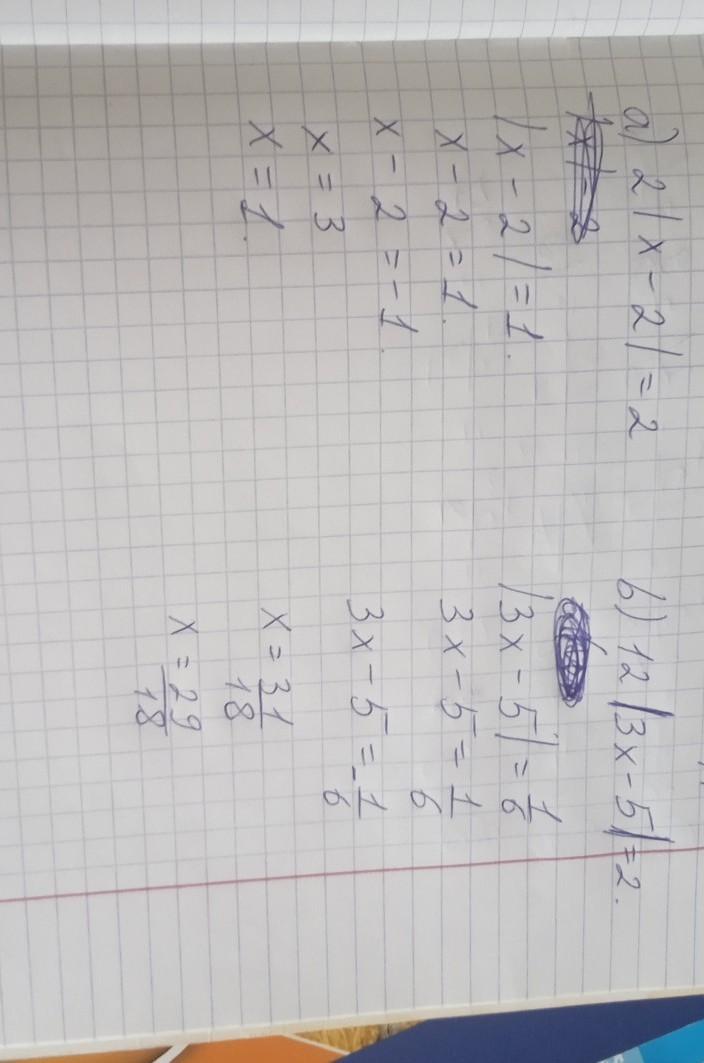 a) 2|x-2|=2
|x-2|=1.
x-2=1.
x-2=-1.
x=3
x=1.
b) 12|3x-5|=2.
|3x-5|=1/6
3x-5=1/6
3x-5=-1/6
x=31/18
x=29/18